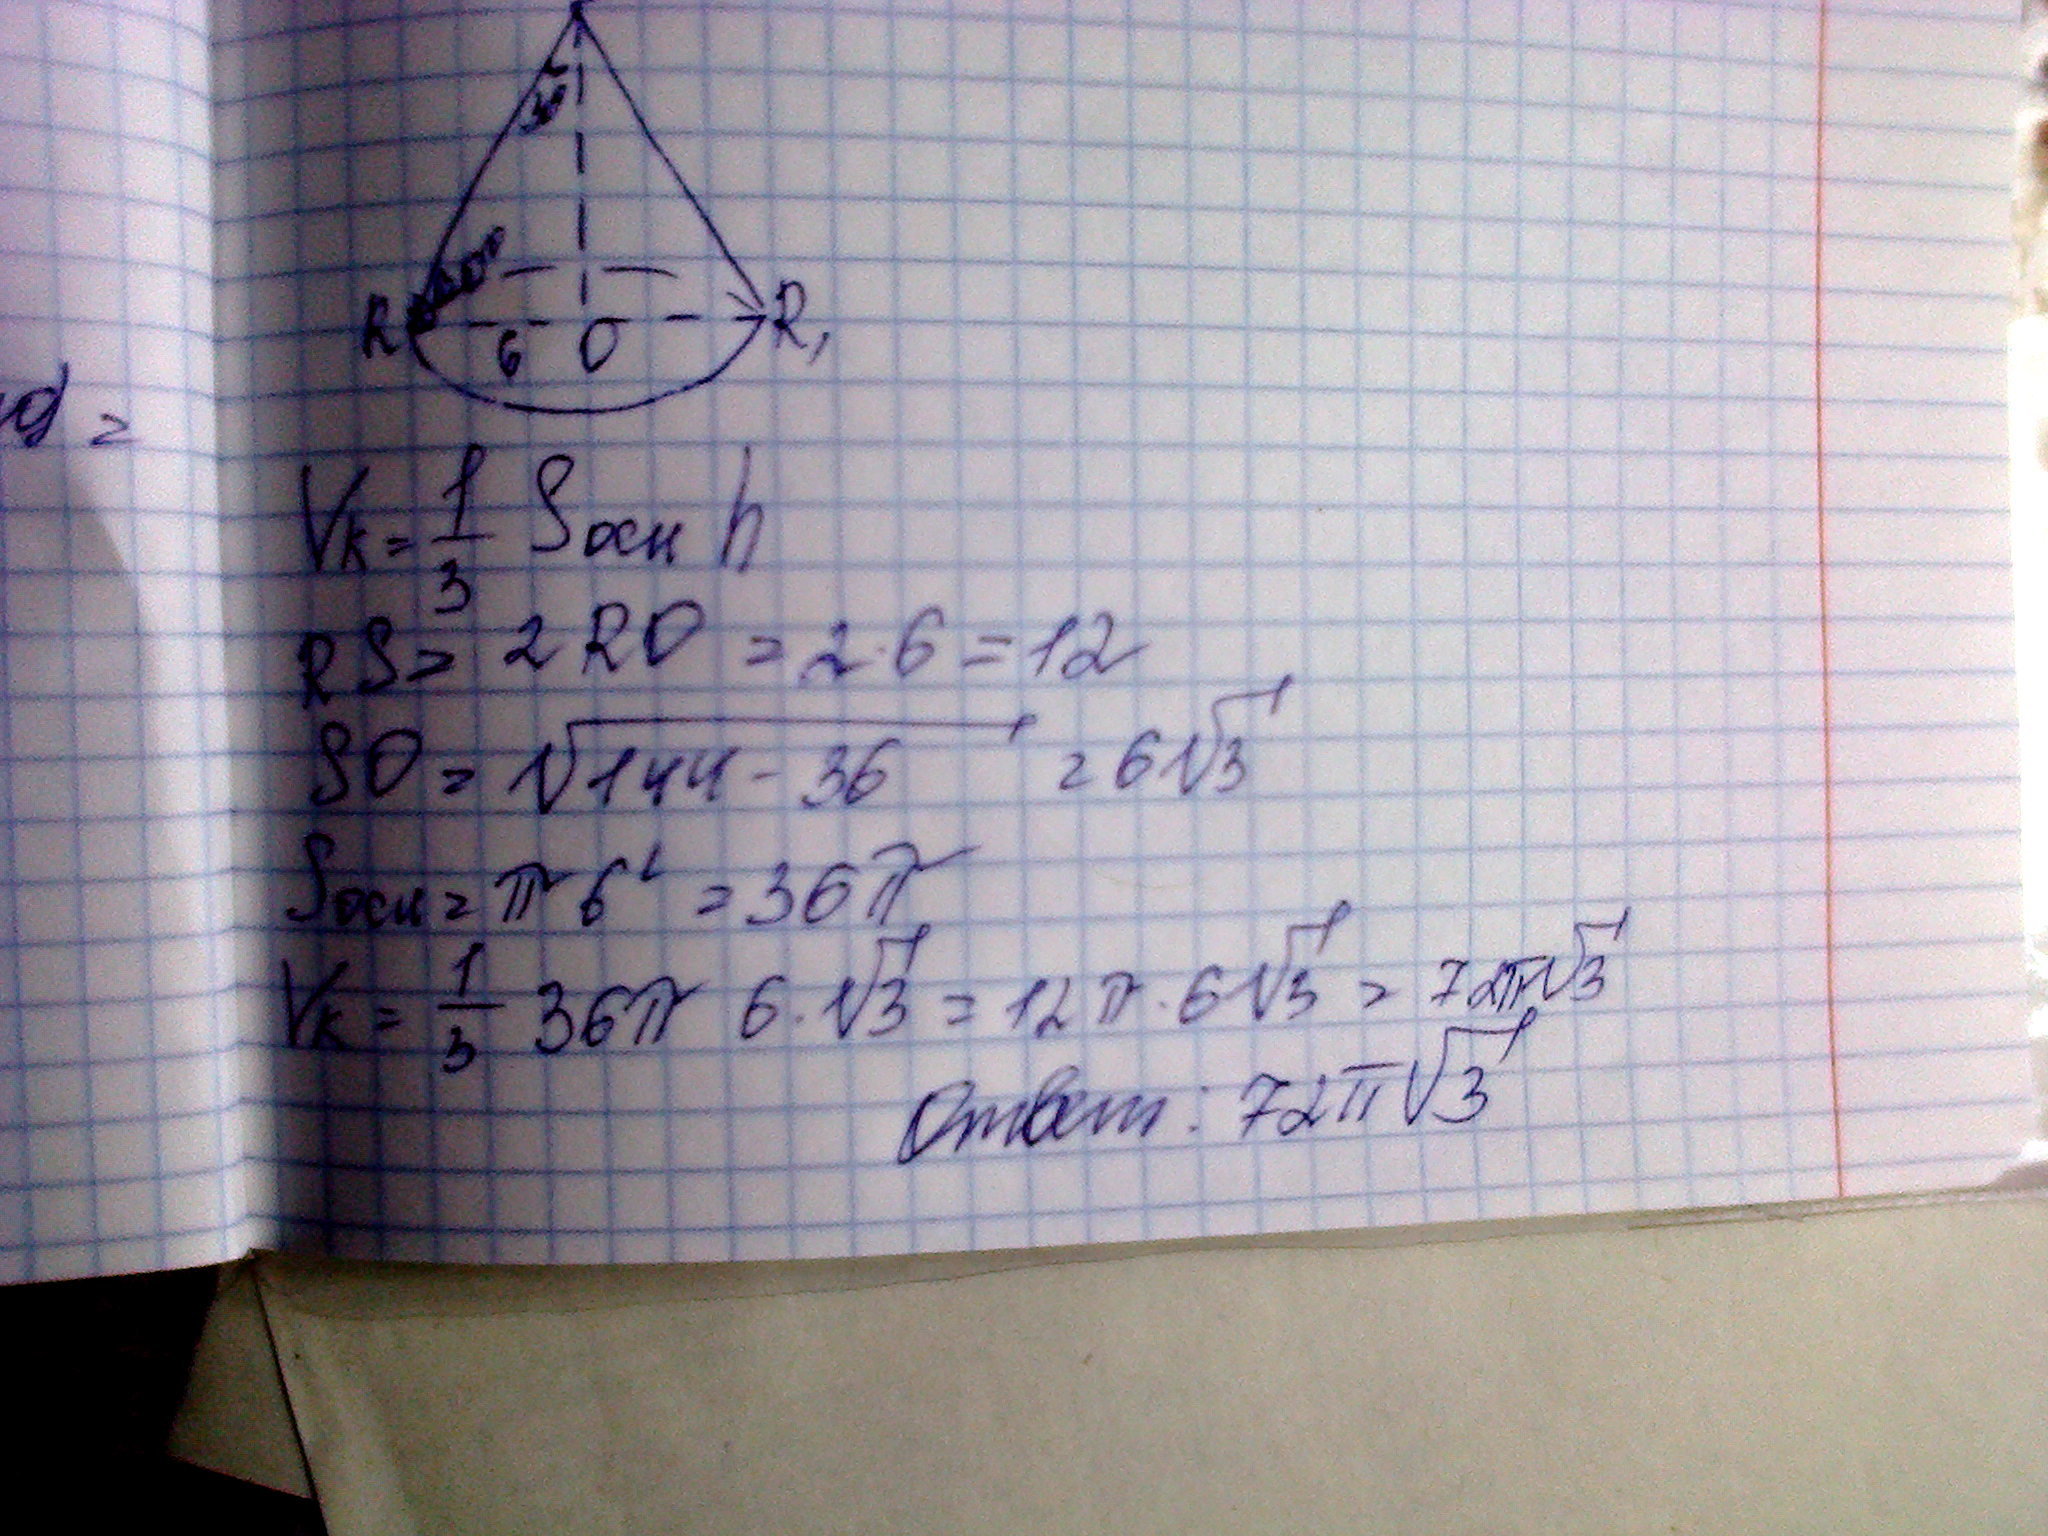 30°
60°
R 6 O R₁
Vк = 1/3 Sосн h
RS = 2RO = 2·6 = 12
SO = √144 - 36 = 6√3
Sосн = π6² = 36π
Vк = 1/3 36π 6·√3 = 12π·6√3 = 72π√3
Ответ: 72π√3